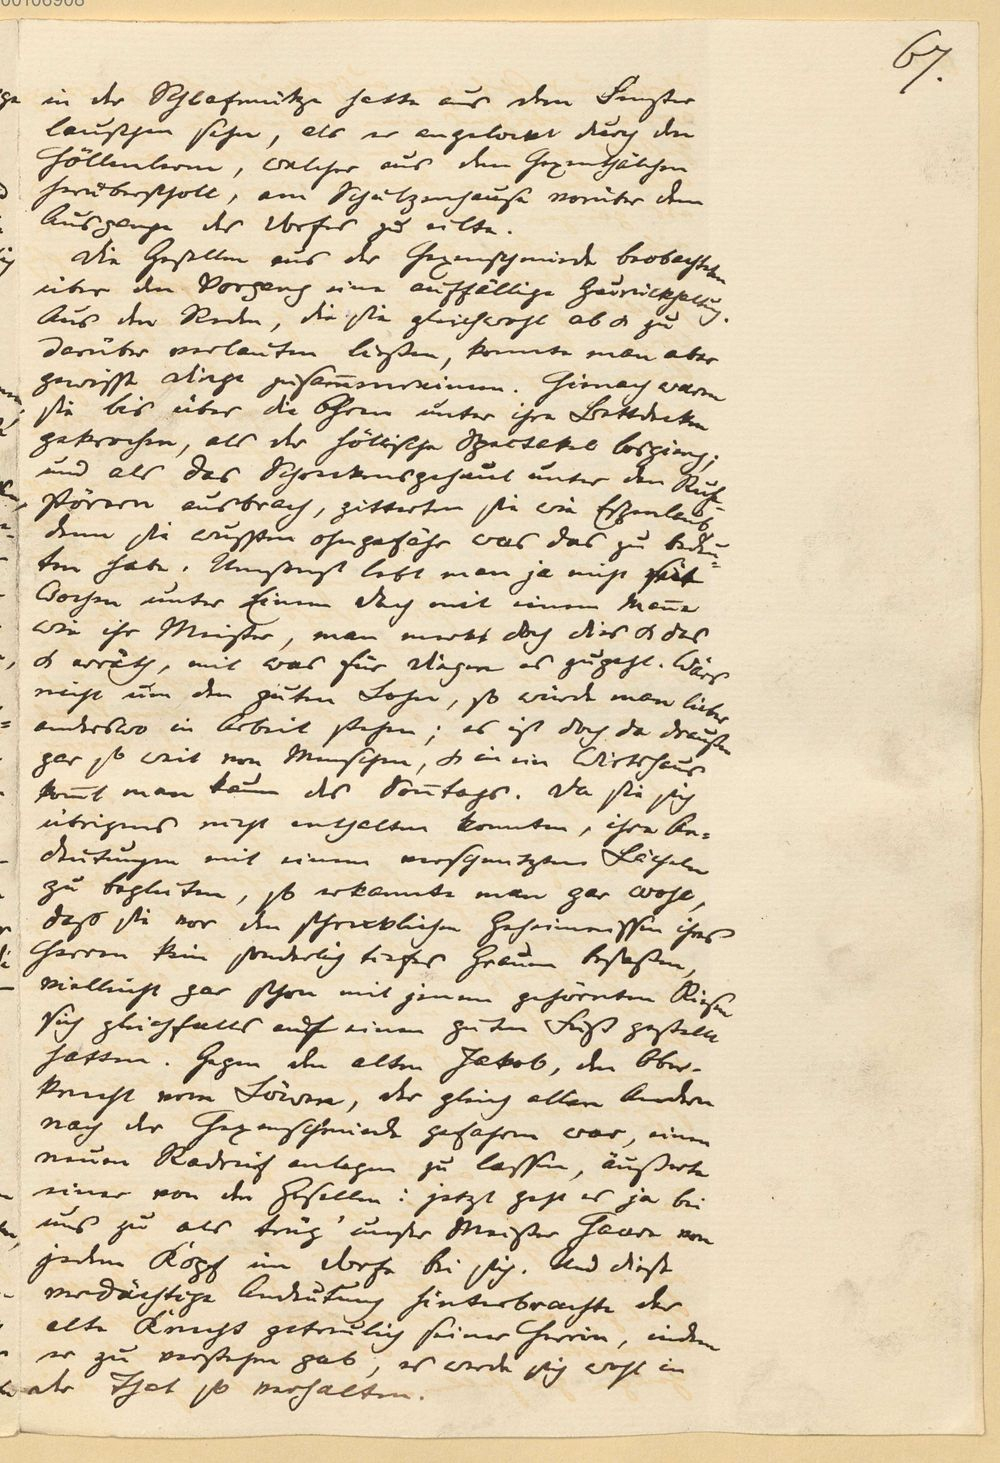 00106968
67.
in der Schlafmütze hatte aus dem Fenster
lauschen sehn, als er angelockt durch den
Höllenlärm, welcher aus dem Hexenthälchen
herüberscholl, am Schulzenhause vorüber dem
Ausgange des Dorfes zu eilte.
Die Gesellen aus der Hexenschmiede beobachteten
über den Vorgang eine auffällige Zurückhaltung.
Aus den Reden, die sie gleichwohl ab & zu
darüber verlauten ließen, konnte man aber
gewisse Dinge zusam̅enreimen. Hienach waren
sie bis über die Ohren unter ihre Bettdecken
gekrochen, als der höllische Spectakel losgieng;
und als das Schreckensgeheul unter den Ruhe-
störern ausbrach, zitterten sie wie Espenlaub,
denn sie wussten ohngefähr was das zu bedeu-
ten habe. Umsonst lebt man ja nicht seit
Wochen unter Einem Dach mit einem Man̅e
wie ihr Meister, man merkt doch dies & das
& erräth, mit was für Dingen es zugeht. Wärs
nicht um den guten Lohn, so würde man lieber
anderswo in Arbeit stehen; es ist doch da draußen
gar so weit von Menschen, & in ein Wirtshaus
kom̅t man kaum des Son̅tags. Da sie sich
übrigens nicht enthalten konnten, ihre An-
deutungen mit einem verschmitzten Lächeln
zu begleiten, so erkannte man gar wohl,
daß sie vor den schrecklichen Geheimnissen ihres
Herren kein sonderlich tiefes Graun besaßen,
vielleicht gar schon mit jenem gehörnten Riesen
sich gleichfalls auf einen guten Fuß gestellt
hatten. Gegen den alten Jakob, den Ober-
knecht vom Löwen, der gleich allen Andern
nach der Hexenschmiede gefahren war, einen
neuen Radreif anlegen zu lassen, äußerte
einer von den Gesellen: jetzt geht es ja bei
uns zu als trüg' unser Meister Haare von
jedem Kopf im Dorfe bei sich. Und diese
verdächtige Andeutung hinterbrachte der
alte Knecht getreulich seiner Herrin, indem
er zu verstehen gab, es werde sich wohl in
der That so verhalten.